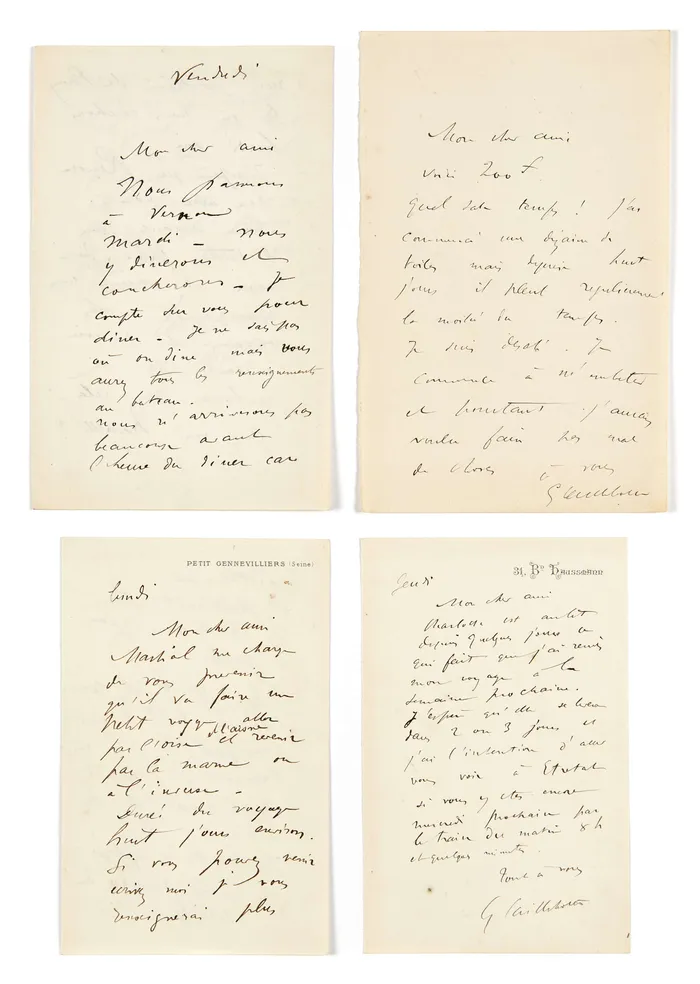 Vendredi
Mon cher ami
Nous passons
à Vernon
mardi – nous
y dinerons et
coucherons – je
compte sur vous pour
diner – Je ne sais pas
où on dine mais vous
aurez tous les renseignements
au bateau.
nous n'arriverons pas
beaucoup avant
l'heure du diner car
Mon cher ami
voici 200 f
Quel sale temps ! j'ai
commencé une dizaine de
toiles mais depuis huit
jours il pleut regulierement
la moitié du temps.
Je suis désolé. Je
commence à m'embêter
et pourtant j'aurais
voulu faire pas mal
de choses
à vous
G Caillebotte
PETIT GENNEVILLIERS (Seine)
lundi
Mon cher ami
Martial me charge
de vous prevenir
qu'il va faire un
petit voyage aller
par l'oise et revenir
par la marne ou
à l'inverse –
Durée du voyage
huit jours environ.
Si vous pouvez venir
ecrivez moi je vous
renseignerai plus
31, Bd Haussmann
Jeudi
Mon cher ami
Charlotte est au lit
depuis quelques jours ce
qui fait que j'ai remis
mon voyage à la
semaine prochaine.
J'espère qu'elle se lèvera
dans 2 ou 3 jours et
j'ai l'intention d'aller
vous voir à Etretat
si vous y etes encore
mercredi prochain par
le train du matin 8 h
et quelques minutes.
Tout à vous
G Caillebotte